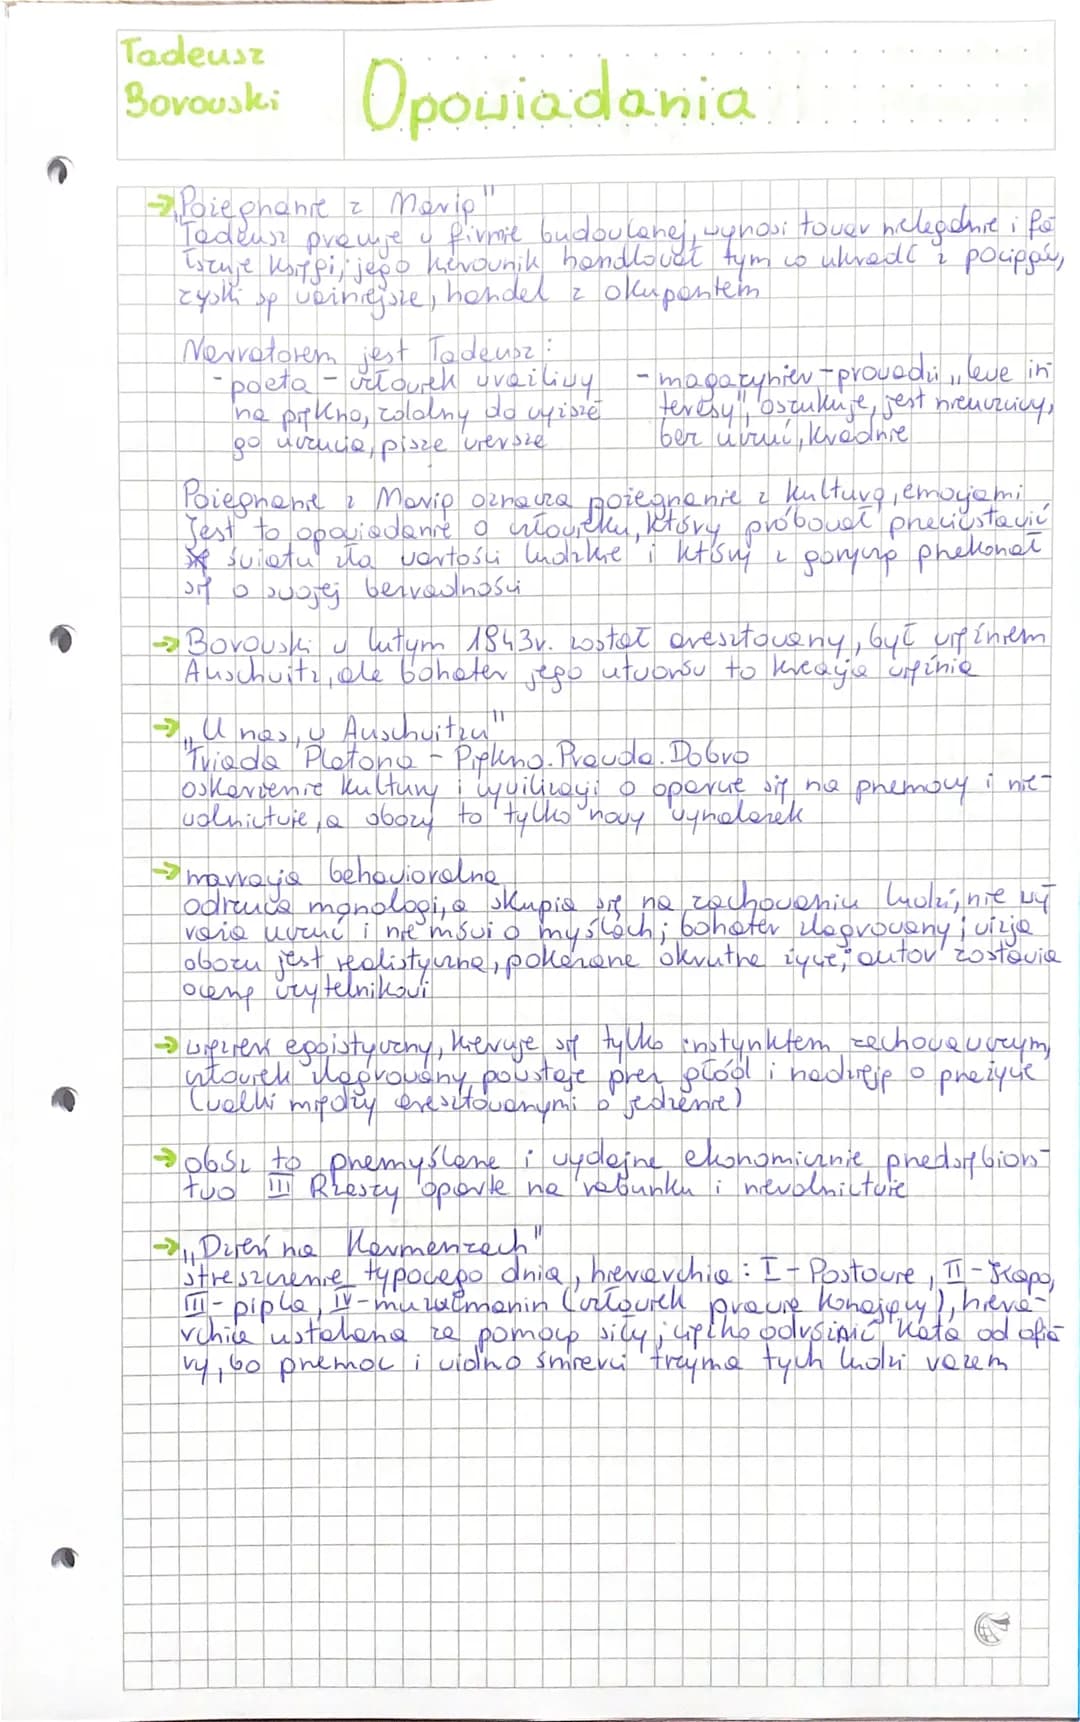 Tadeusz
Borowski
Opowiadania
→ „Pożegnanie z Marią"
Tadeusz pracuje w firmie budowlanej, wynosi towar nielegalnie i fa
łszuje księgi, jego kierownik handlował tym co ukradł z pociągów,
zyski są ważniejsze, handel z okupantem
Narratorem jest Tadeusz:
- poeta - człowiek wrażliwy
na piękno, zdolny do wyższe
go uczucia, pisze wiersze
- magazynier - prowadzi „lewe in
teresy", oszukuje, jest nieuczciwy,
bez uczuć, kradnie
Pożegnanie z Marią oznacza pożegnanie z kulturą, emocjami
Jest to opowiadanie o człowieku, który próbował przeciwstawić
światu zła wartości ludzkie i który z goryczą przekonał
się o swojej bezradności
→ Borowski w lutym 1843r. został aresztowany, był więźniem
Auschwitz, ale bohater jego utworów to kreacja więźnia
→ „U nas, w Auschwitzu"
Triada Platona - Piękno. Prawda. Dobro
oskarżenie kultury i cywilizacji o oparcie się na przemocy i nie-
wolnictwie, a obozy to tylko nowy wynalazek
→ marracja behawioralna
odrzuca monologi, a skupia się na zachowaniu ludzi, nie wy
raża uczuć i nie mówi o myślach; bohater zlagrowany; wizja
obozu jest realistyczna, pokazane okrutne życie; autor zostawia
ocenę czytelnikowi
→ więzień egoistyczny, kieruje się tylko instynktem zachowawczym,
człowiek zlagrowany powstaje przez głód i nadzieję o przeżycie
(walki między aresztowanymi o jedzenie)
→ obóz to przemyślane i wydajne ekonomicznie przedsiębiors-
two III Rzeszy oparte na rabunku i niewolnictwie
→ „Dzień na Harmenzach"
streszczenie typowego dnia, hierarchia: I - Postowie, II - Kapo,
III - pipla, IV - muzułmanin (człowiek prawie konający), hiera-
rchia ustalana za pomocą siły; ciężko odróżnić kata od ofia
ry, bo przemoc i widmo śmierci trzyma tych ludzi razem